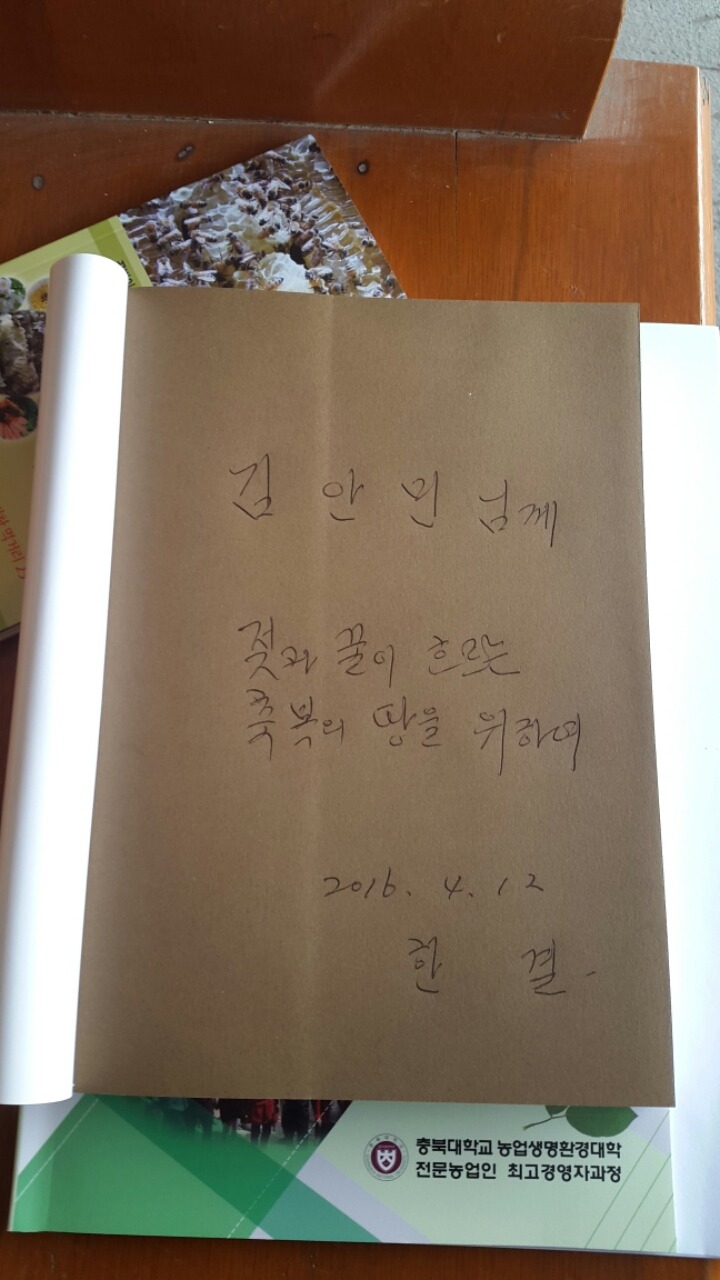 김 안 민 님께
젖과 꿀이 흐르는
축복의 땅을 위하여
2016. 4. 12
한 결.
충북대학교 농업생명환경대학
전문농업인 최고경영자과정
먹거리